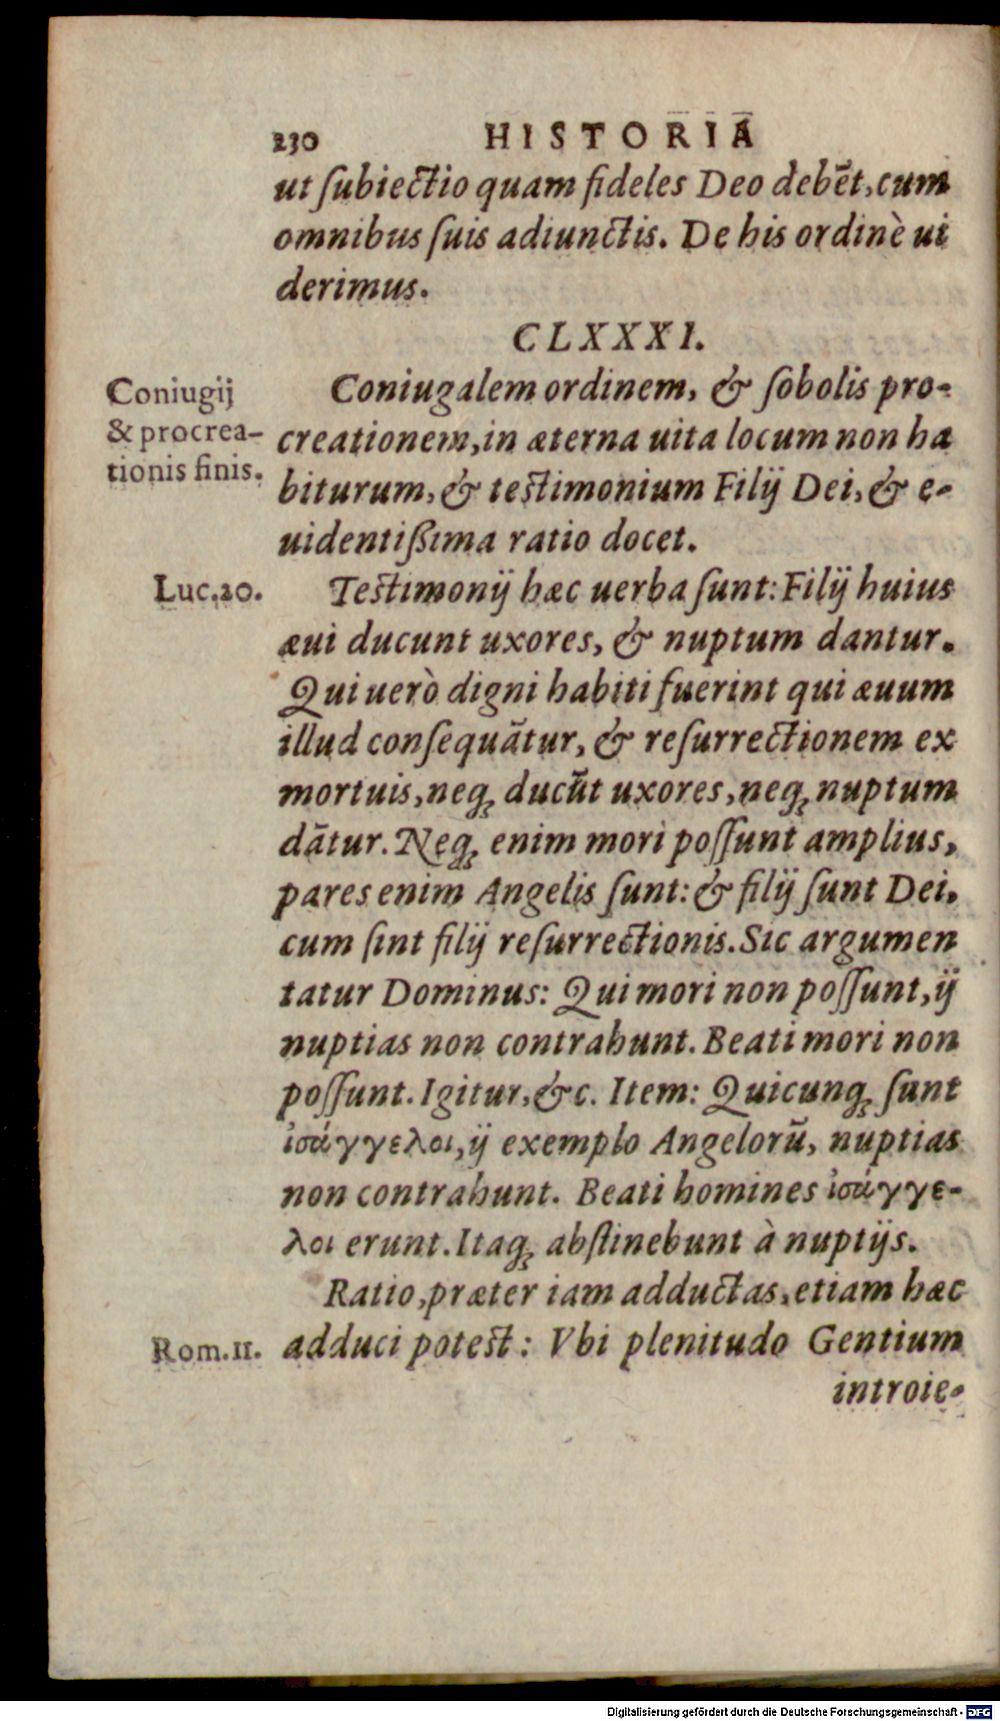 230 HISTORIA
ut ſubiectio quam fideles Deo debẽt, cum
omnibus ſuis adiunctis. De his ordinè ui
derimus.
CLXXXI.
Coniugij
& procrea-
tionis finis.
Coniugalem ordinem, & ſobolis pro-
creationem, in æterna uita locum non ha
biturum, & testimonium Filij Dei, & e-
uidentißima ratio docet.
Luc.20.
Testimonij hæc uerba ſunt: Filij huius
æui ducunt uxores, & nuptum dantur.
Qui uerò digni habiti fuerint qui æuum
illud conſequãtur, & reſurrectionem ex
mortuis, neqꝫ ducũt uxores, neqꝫ nuptum
dãtur. Neqꝫ enim mori poſſunt amplius,
pares enim Angelis ſunt: & filij ſunt Dei,
cum ſint filij reſurrectionis. Sic argumen
tatur Dominus: Qui mori non poſſunt, ij
nuptias non contrahunt. Beati mori non
poſſunt. Igitur, &c. Item: Quicunqꝫ ſunt
ἰσάγγελοι, ij exemplo Angelorũ, nuptias
non contrahunt. Beati homines ἰσάγγε-
λοι erunt. Itaqꝫ abſtinebunt à nuptijs.
Ratio, præter iam adductas, etiam hæc
Rom.11.
adduci potest: Vbi plenitudo Gentium
introie-
Digitalisierung gefördert durch die Deutsche Forschungsgemeinschaft - DFG